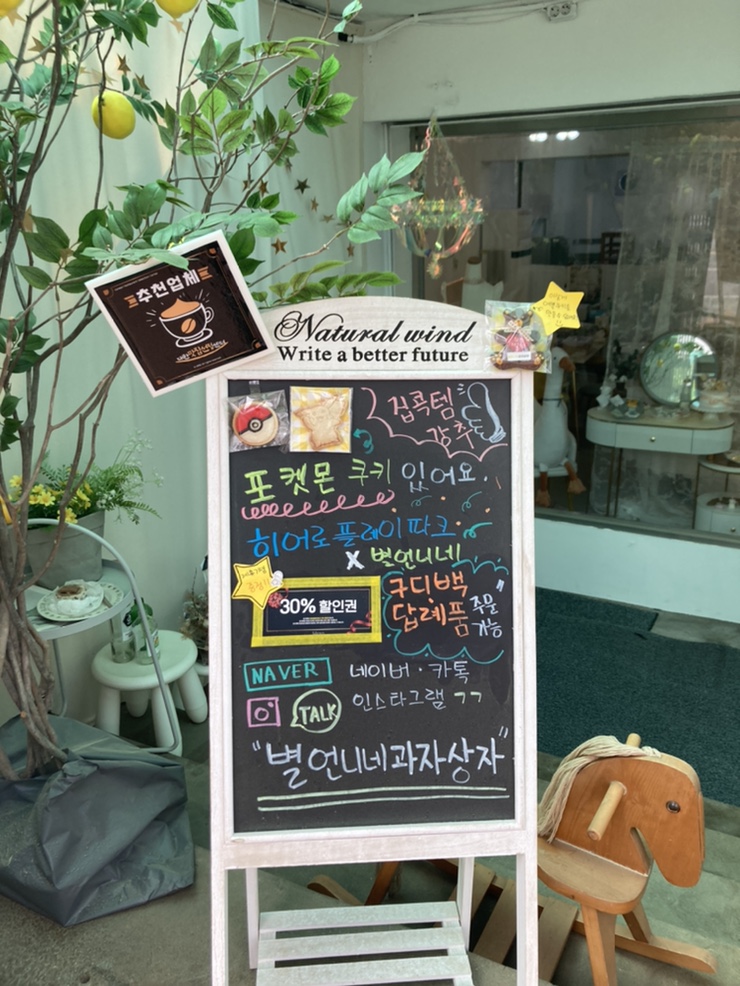 추천업체
Natural wind
Write a better future
집콕템
강추
포켓몬 쿠키 있어요.
히어로플레이파크
X 별언니네
30% 할인권
구디백
답례품
주문
가능
NAVER
네이버·카톡
TALK
인스타그램 ㄱㄱ
"별언니네과자상자"